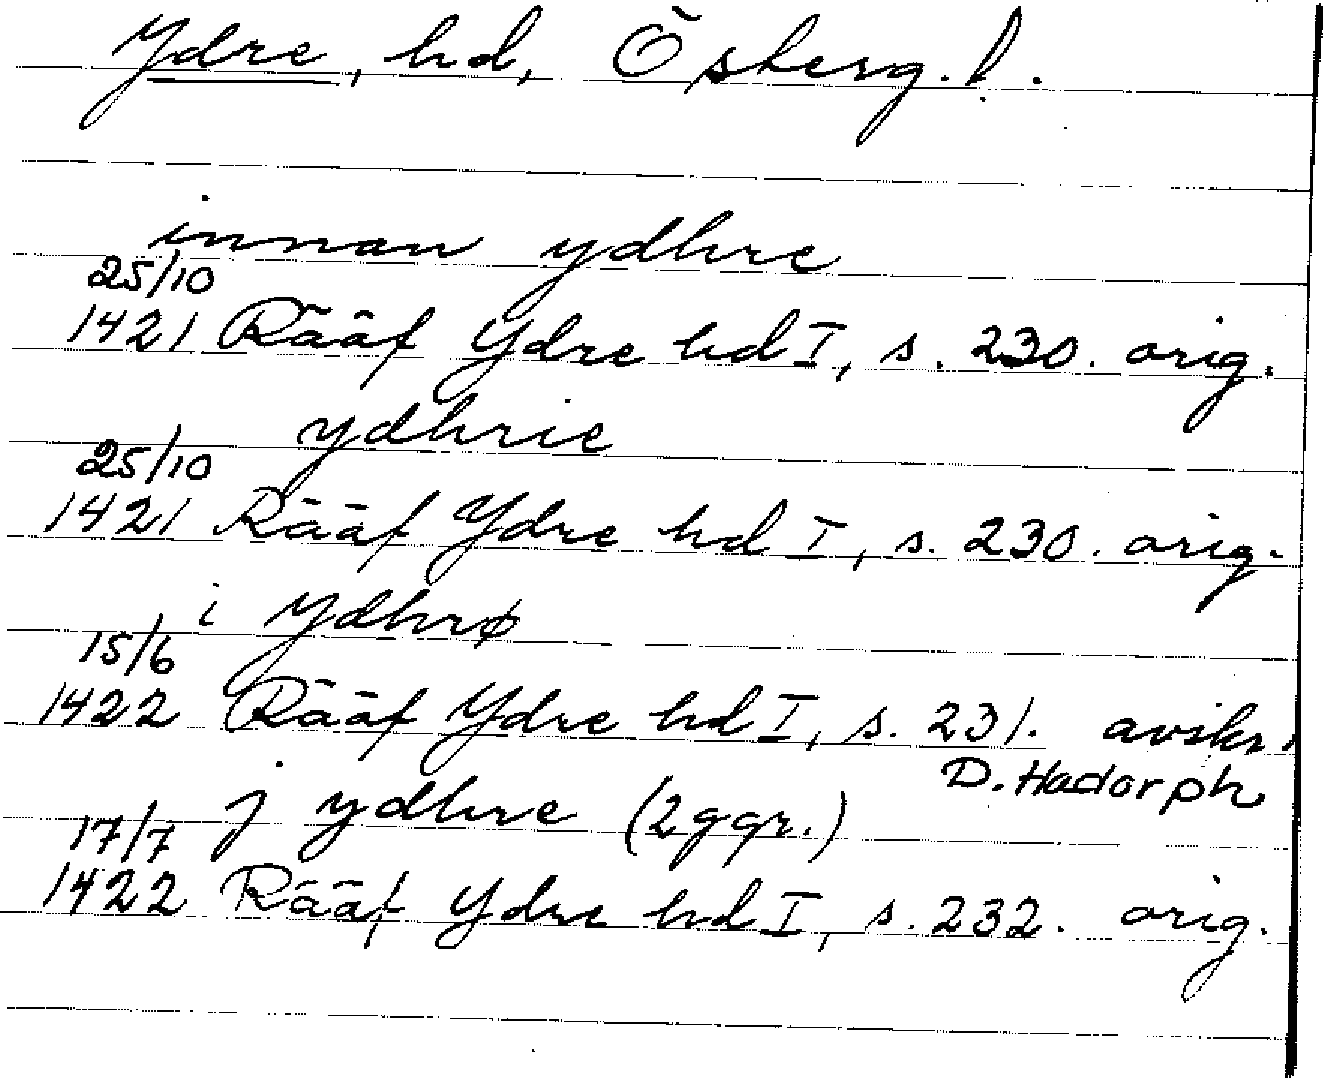 Ydre, hd, Österg. l.
innan ydhre
25/10
1421 Rääf Ydre hd I, s. 230. orig.
ydhrie
25/10
1421 Rääf Ydre hd I, s. 230. orig.
i ydhrø
15/6
1422 Rääf Ydre hd I, s. 231. avskr.
D. Hadorph
j ydhre (2ggr.)
17/7
1422 Rääf Ydre hd I, s. 232. orig.